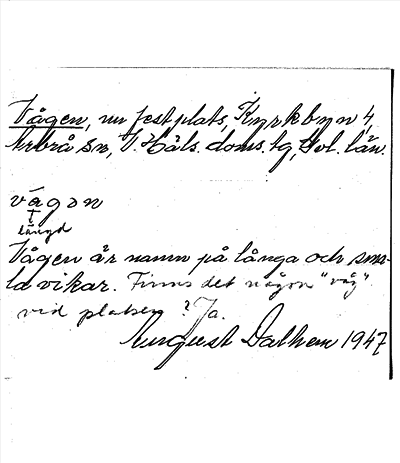 Vågen, nu festplats, Kyrkbyn 4,
Arbrå sn, V. Häls. doms. tg, Gvl. län.
vågən
längd
Vågen är namn på långa och sma-
la vikar. Finns det någon "våg"
vid platsen? Ja.
August Dalhem 1947